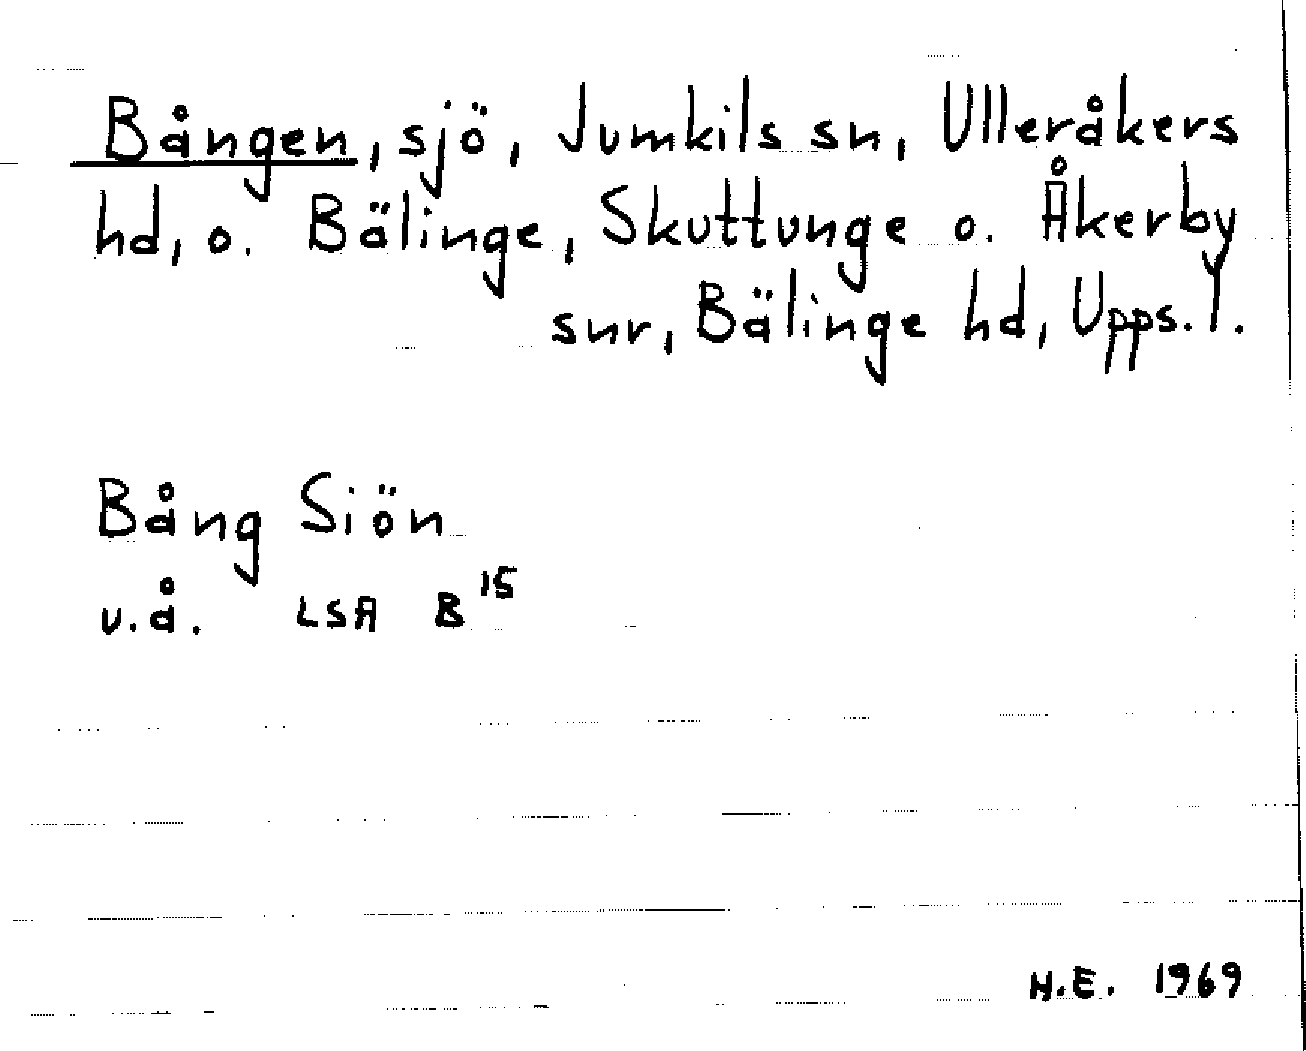 Bången, sjö, Jumkils sn, Ulleråkers
hd, o. Bälinge, Skuttunge o. Åkerby
snr, Bälinge hd, Upps. l.
Bång Siön
u.å. LSA B¹⁵
H.E. 1969